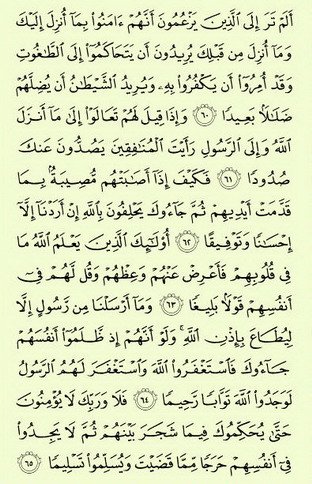 أَلَمْ تَرَ إِلَى ٱلَّذِينَ يَزْعُمُونَ أَنَّهُمْ ءَامَنُوا۟ بِمَآ أُنزِلَ إِلَيْكَ
وَمَآ أُنزِلَ مِن قَبْلِكَ يُرِيدُونَ أَن يَتَحَاكَمُوٓا۟ إِلَى ٱلطَّٰغُوتِ
وَقَدْ أُمِرُوٓا۟ أَن يَكْفُرُوا۟ بِهِۦ وَيُرِيدُ ٱلشَّيْطَٰنُ أَن يُضِلَّهُمْ
ضَلَٰلًۢا بَعِيدًا ٦٠ وَإِذَا قِيلَ لَهُمْ تَعَالَوْا۟ إِلَىٰ مَآ أَنزَلَ
ٱللَّهُ وَإِلَى ٱلرَّسُولِ رَأَيْتَ ٱلْمُنَٰفِقِينَ يَصُدُّونَ عَنكَ
صُدُودًا ٦١ فَكَيْفَ إِذَآ أَصَٰبَتْهُم مُّصِيبَةٌۢ بِمَا
قَدَّمَتْ أَيْدِيهِمْ ثُمَّ جَآءُوكَ يَحْلِفُونَ بِٱللَّهِ إِنْ أَرَدْنَآ إِلَّآ
إِحْسَٰنًا وَتَوْفِيقًا ٦٢ أُو۟لَٰٓئِكَ ٱلَّذِينَ يَعْلَمُ ٱللَّهُ مَا
فِى قُلُوبِهِمْ فَأَعْرِضْ عَنْهُمْ وَعِظْهُمْ وَقُل لَّهُمْ فِىٓ
أَنفُسِهِمْ قَوْلًۢا بَلِيغًا ٦٣ وَمَآ أَرْسَلْنَا مِن رَّسُولٍ إِلَّا
لِيُطَاعَ بِإِذْنِ ٱللَّهِ ۚ وَلَوْ أَنَّهُمْ إِذ ظَّلَمُوٓا۟ أَنفُسَهُمْ
جَآءُوكَ فَٱسْتَغْفَرُوا۟ ٱللَّهَ وَٱسْتَغْفَرَ لَهُمُ ٱلرَّسُولُ
لَوَجَدُوا۟ ٱللَّهَ تَوَّابًا رَّحِيمًا ٦٤ فَلَا وَرَبِّكَ لَا يُؤْمِنُونَ
حَتَّىٰ يُحَكِّمُوكَ فِيمَا شَجَرَ بَيْنَهُمْ ثُمَّ لَا يَجِدُوا۟
فِىٓ أَنفُسِهِمْ حَرَجًا مِّمَّا قَضَيْتَ وَيُسَلِّمُوا۟ تَسْلِيمًا ٦٥